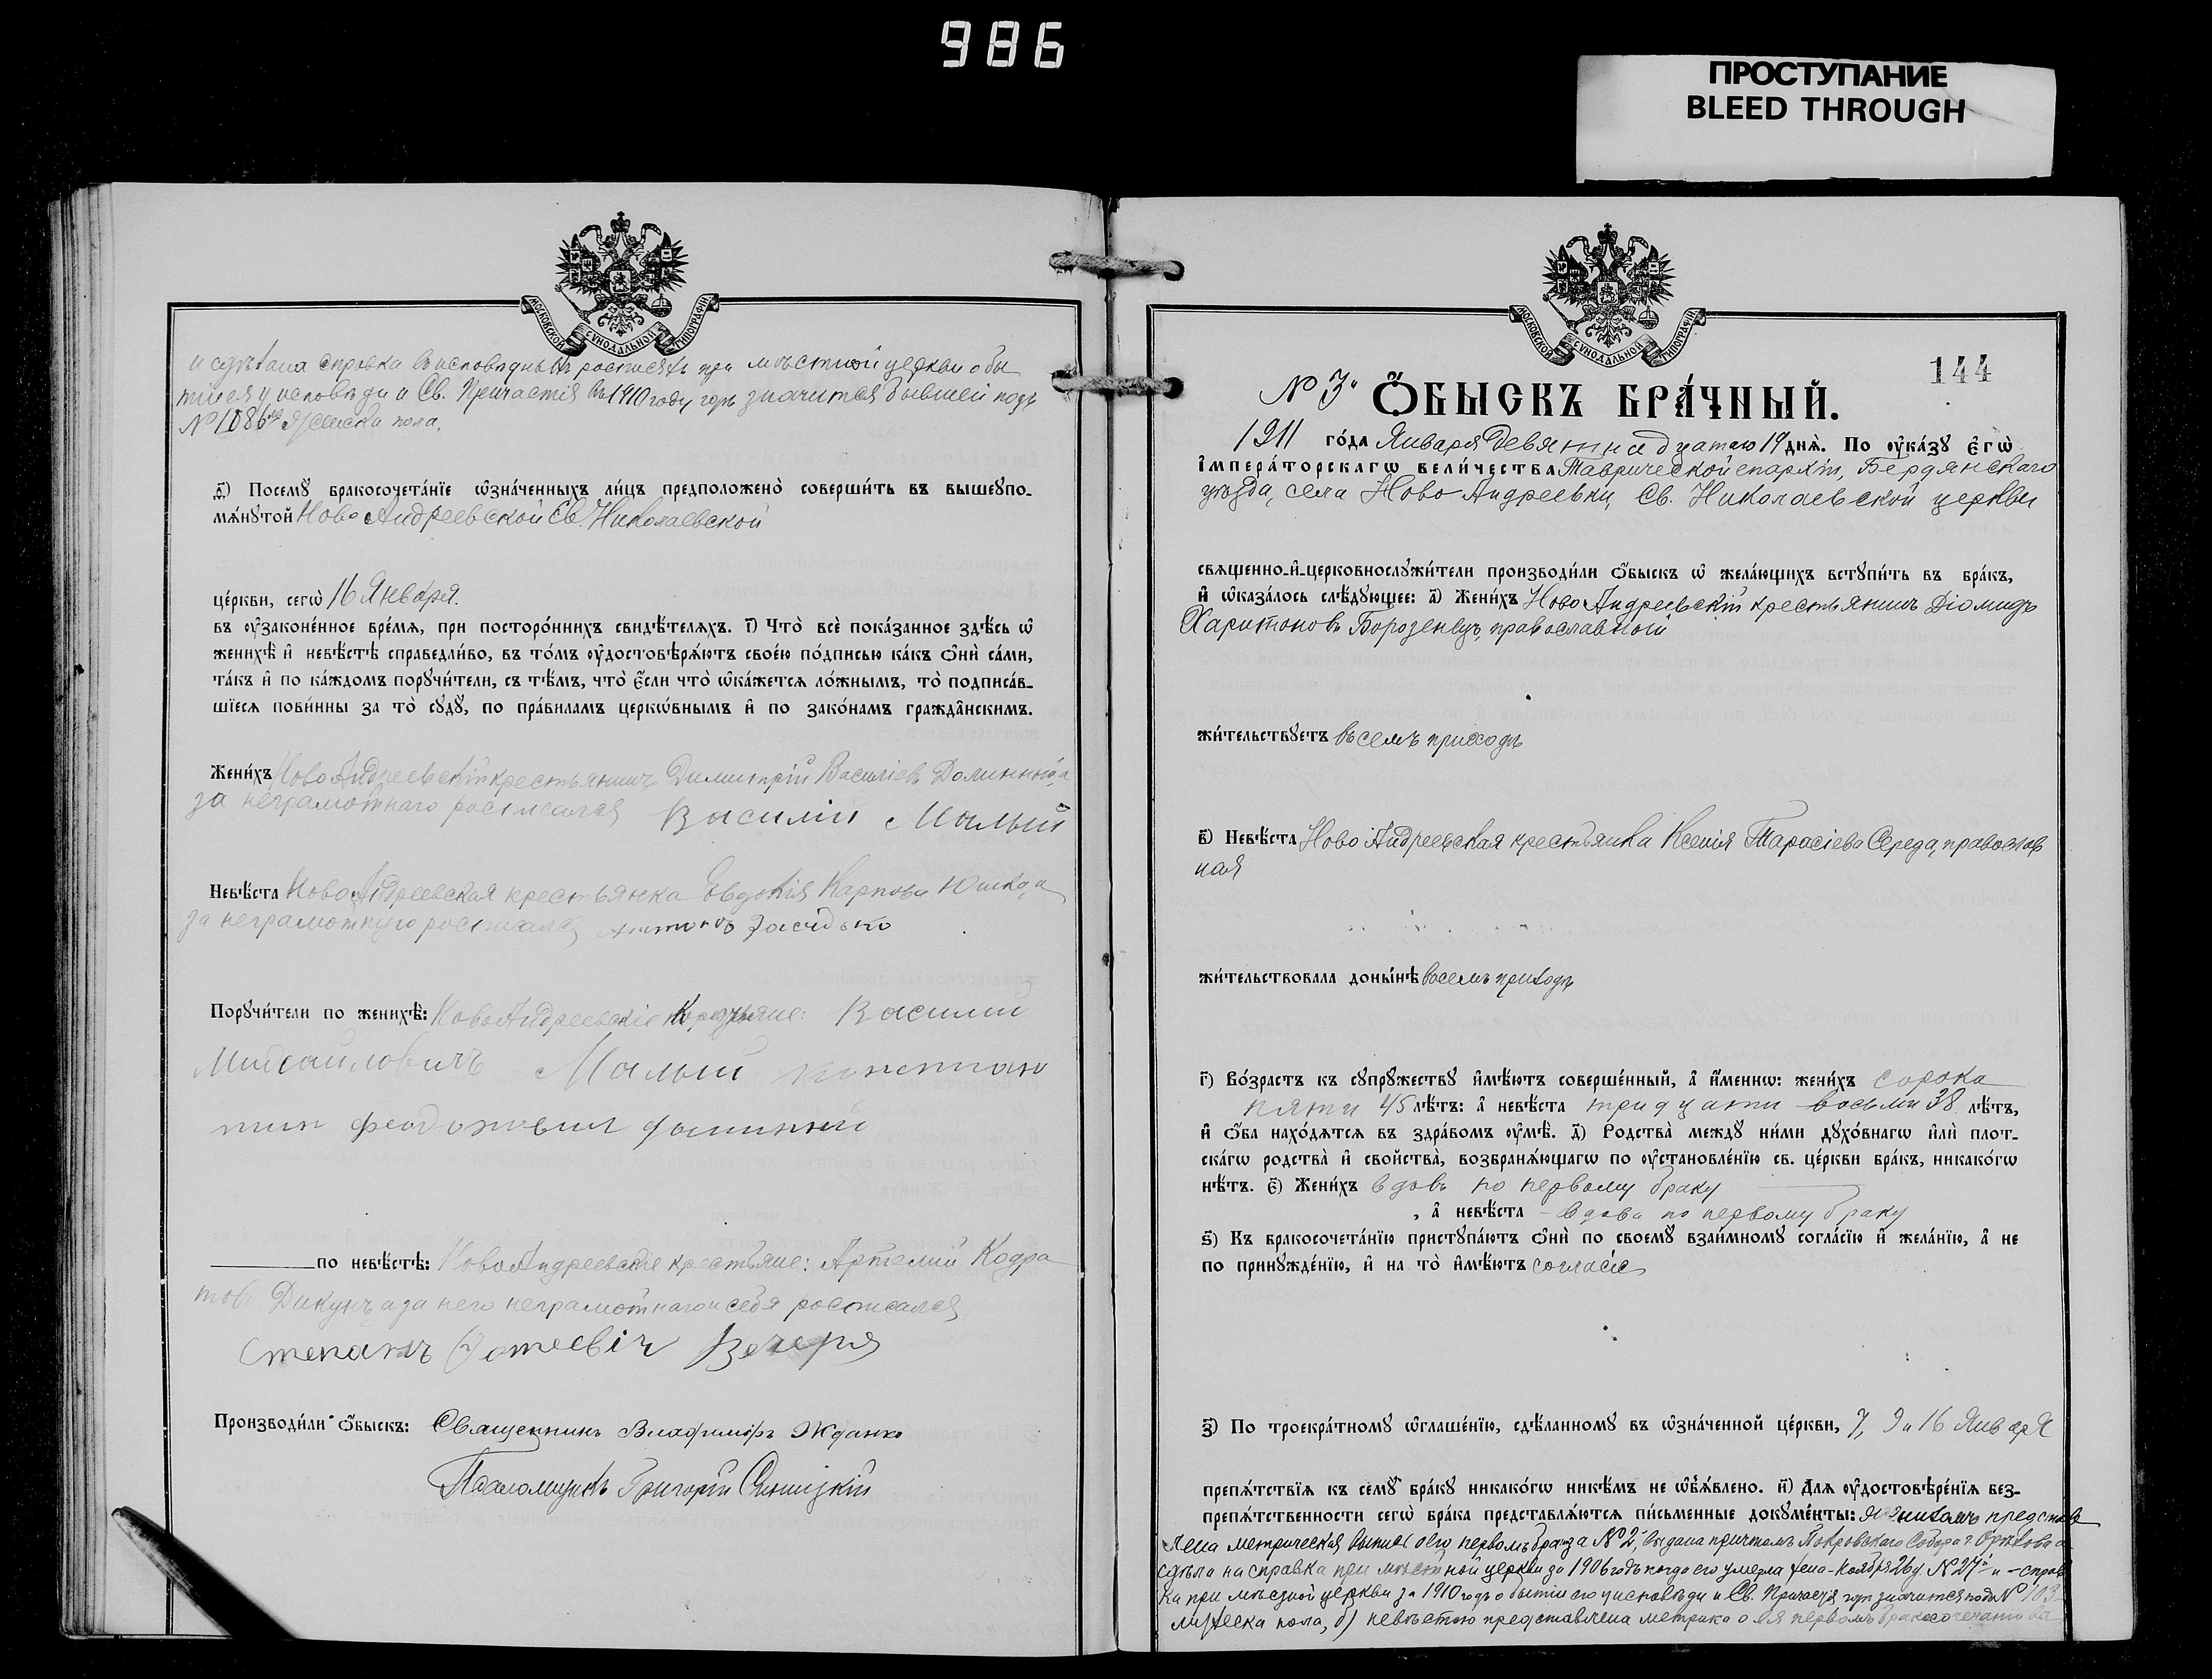 986
ПРОСТУПАНИЕ
BLEED THROUGH
МОСКОВСКОЙ СѴНОДАЛЬНОЙ ТИПОГРАФІИ
и сдѣлана справка въ исповѣдныхъ росписяхъ при мѣстной церкви о бы
тіи ея у исповѣди и Св. Причастія въ 1910 году гдѣ значится бывшей подъ
№ 1086 женска пола.
д҃) Посемꙋ бракосочета́нїе ѡ҆зна́ченныхъ ли́цъ предположено̀ соверши́ть въ вышеꙋпо-
мѧ́нꙋтой Ново Андреевской Св. Николаевской
це́ркви, сегѡ̀ 16 Января.
въ ᲂу҆зако́ненное вре́мѧ, при посторо́ннихъ свидѣ́телѧхъ. і҃) Что̀ всѐ пока́занное здѣ́сь ѡ҆
женихѣ̀ и҆ невѣ́стѣ справедли́во, въ то́мъ ᲂу҆достовѣрѧ́ютъ свое́ю по́дписью ка́къ ѻ҆нѝ са́ми,
та́къ и҆ по ка́ждомъ порꙋчи́тели, съ тѣ́мъ, что̀ є҆́сли что̀ ѡ҆ка́жетсѧ ло́жнымъ, то̀ подписа́в-
шїесѧ пови́нны за то̀ сꙋдꙋ̀, по пра́виламъ церко́внымъ и҆ по зако́намъ гражда́нскимъ.
Жени́хъ Ново Андреевскій крестьянинъ Димитрій Василіевъ Долинный, а
за неграмотнаго росписался Василій Малый
Невѣ́ста Ново Андреевская крестьянка Евдокія Карпова Юшко, а
за неграмотную росписался Антонъ Засидько
Порꙋчи́тели по женихѣ̀: Ново Андреевскіе крестьяне: Василий
Михайловичъ Малый Констан
тин Феодо Долинный
по невѣ́стѣ: Ново Андреевскіе крестьяне: Артемій Кодра
товъ Дикунъ а за него неграмотнаго и себя росписался
Степанъ Фотеевіч Вечеря
Производи́ли ѻ҆́быскъ: Священникъ Владиміръ Жданко
Псаломщикъ Григорій Синицкій
МОСКОВСКОЙ СѴНОДАЛЬНОЙ ТИПОГРАФІИ
144
№ 3й
Ѻ҆́БЫСКЪ БРА́ЧНЫЙ.
1911 го́да Января девятнадцатаго 19 днѧ̀. По ᲂу҆ка́зꙋ Є҆гѡ̀
І҆мпера́торскагѡ вели́чества Таврической епархіи, Бердянскаго
уѣзда, села Ново Андреевки, Св. Николаевской церкви
свѧщенно-и҆-церковнослꙋжи́тели производи́ли ѻ҆́быскъ ѡ҆ жела́ющихъ встꙋпи́ть въ бра́къ,
и҆ ѡ҆каза́лось слѣ́дꙋющее: а҃) Жени́хъ Ново Андреевскій крестьянинъ Діомидъ
Харитоновъ Борозенецъ, православный
жи́тельствꙋетъ въ семъ приходѣ
в҃) Невѣ́ста Ново Андреевская крестьянка Ксенія Тарасіева Середа, православ
ная
жи́тельствовала доны́нѣ въ семъ приходѣ
г҃) Во́зрастъ къ сꙋпрꙋжествꙋ и҆мѣ́ютъ соверше́нный, а҆ и҆́меннѡ: жени́хъ сорока
пяти 45 лѣ́тъ: а҆ невѣ́ста тридцати восьми 38 лѣ́тъ,
и҆ ѻ҆́ба нахо́дѧтсѧ въ здра́вомъ ᲂу҆мѣ̀. д҃) Ро́дства̀ междꙋ̀ ни́ми дꙋхо́внагѡ и҆лѝ плот-
ска́гѡ родства̀ и҆ сво́йства̀, возбранѧ́ющагѡ по ᲂу҆становле́нїю св. це́ркви бра́къ, никако́гѡ
нѣ́тъ. є҃) Жени́хъ вдовъ по первому браку
, а҆ невѣ́ста – вдова по первому браку
ѕ҃) Къ бракосочета́нїю пристꙋпа́ютъ ѻ҆нѝ по своемꙋ̀ взаи́мномꙋ согла́сїю и҆ жела́нїю, а҆ не
по принꙋжде́нїю, и҆ на то̀ и҆мѣ́ютъ согласіе
з҃) По троекра́тномꙋ ѡ҆глаше́нїю, сдѣ́ланномꙋ въ ѡ҆зна́ченной це́ркви, 7, 9 и 16 Января
препѧ́тствїѧ къ семꙋ̀ бра́кꙋ никако́гѡ никѣ́мъ не ѡ҆б̾ѧ́влено. и҃) Длѧ ᲂу҆достовѣре́нїѧ без-
препѧ́тственности сегѡ̀ бра́ка представлѧ́ютсѧ пи́сьменные докꙋме́нты: женихомъ представ
лена метрическая выпись о его первомъ бракѣ за № 2, выдана причтомъ Покровскаго Собора г. Орѣхова а
сдѣлана справка при мѣстной церкви за 1906 годъ когда его умерла жена – Ноября 26 д № 27й и – справ
ка при мѣстной церкви за 1910 годъ о бытіи его у исповѣди и Св. Причастія гдѣ значится подъ № 103
мужеска пола, б) невѣстою представлена метрика о ея первомъ бракосочетаніи